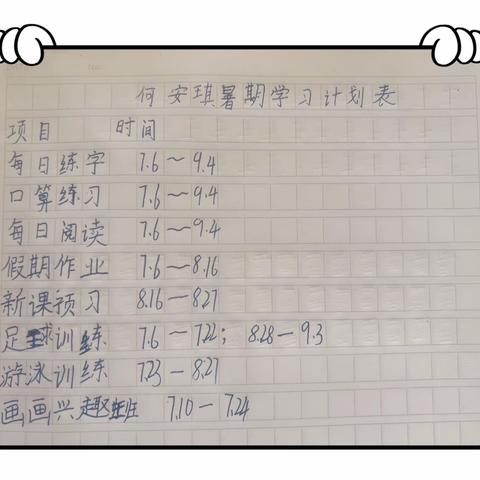 何安琪暑期学习计划表
项目 时间
每日练字 7.6～9.4
口算练习 7.6～9.4
每日阅读 7.6～9.4
假期作业 7.6～8.16
新课预习 8.16－8.27
足球训练 7.6－7.22；8.28－9.3
游泳训练 7.23－8.27
画画兴趣班 7.10－7.24